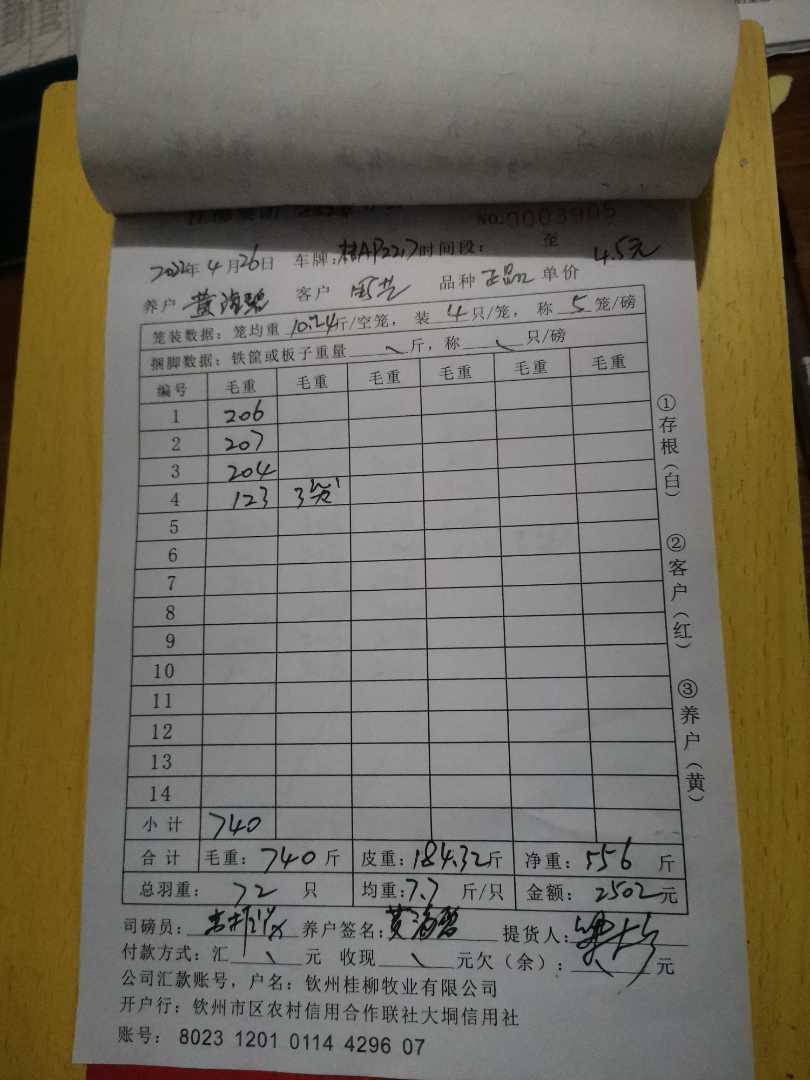 NO.0003905
2022年4月26日 车牌:桂AP2217 时间段: 至
养户 黄海碧 客户 品种 正品 单价 4.5元
笼装数据:笼均重 10.24斤/空笼,装 4 只/笼,称 5 笼/磅
捆脚数据:铁筐或板子重量 、 斤,称 、 只/磅
编号 毛重 毛重 毛重 毛重 毛重 毛重
1 206
2 207
3 204
4 123 3笼
5
6
7
8
9
10
11
12
13
14
小计 740
合计 毛重:740斤 皮重:184.32斤 净重:556 斤
总羽重: 72 只 均重:7.7 斤/只 金额:2502元
司磅员: 养户签名:黄海碧 提货人:
付款方式:汇 、 元 收现 、 元欠(余): 、 元
公司汇款账号,户名:钦州桂柳牧业有限公司
开户行:钦州市区农村信用合作联社大垌信用社
账号: 8023 1201 0114 4296 07
①存根(白)
②客户(红)
③养户(黄)